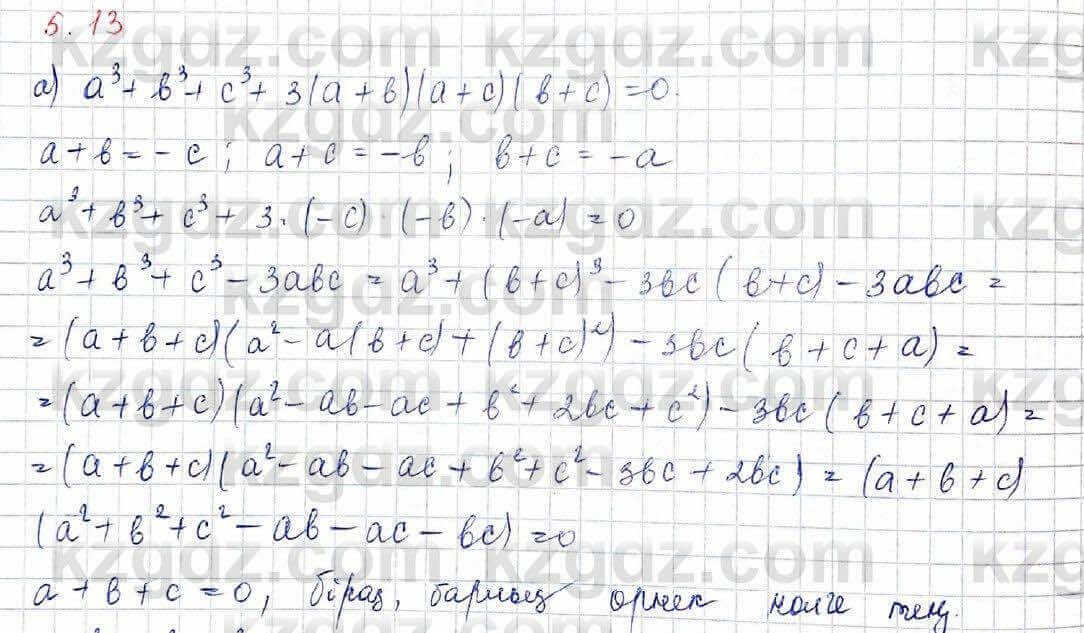 5.13
а) a³ + b³ + c³ + 3(a + b)(a + c)(b + c) = 0.
a + b = - c ; a + c = - b ; b + c = - a
a³ + b³ + c³ + 3 · (-c) · (-b) · (-a) = 0
a³ + b³ + c³ - 3abc = a³ + (b + c)³ - 3bc(b+c) - 3abc =
= (a + b + c)(a² - a(b + c) + (b + c)²) - 3bc(b + c + a) =
= (a + b + c)(a² - ab - ac + b² + 2bc + c²) - 3bc(b + c + a) =
= (a + b + c)(a² - ab - ac + b² + c² - 3bc + 2bc) = (a + b + c)
(a² + b² + c² - ab - ac - bc) = 0
a + b + c = 0, бірақ, барлық өрнек нөлге тең.
kzgdz.com